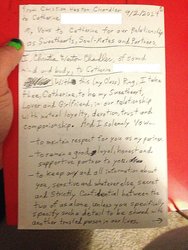 From Christian Weston Chandler 9/2/2021
My Vows to Catherine for our Relationship
as Sweethearts, Soul-Mates and Partners.
I, Christian Weston Chandler, of sound
mind and body, to Catherine
this (my Class) Ring, I take
thee, Catherine, to be my Sweetheart,
Lover and Girlfriend, in our relationship
with mutual loyalty, devotion, trust and
companionship. And I solemnly Vow...
-to maintain respect for you as my partner.
-to remain a good, loyal, honest and
supportive partner to you.
-to keep any and all information about
you, sensitive and whatever else, Secret
and Strictly Confidential between the
two of us alone, unless you specifically
specify such a detail to be shared with
another trusted person in our lives.